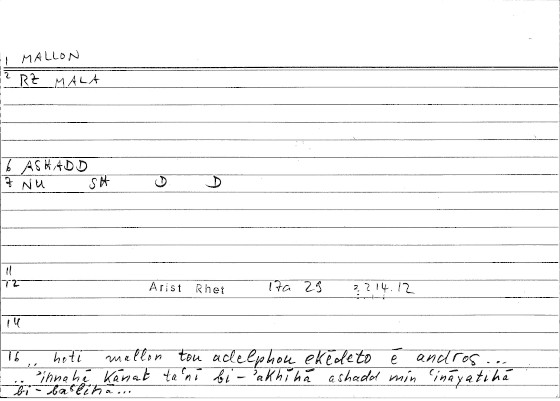 1 MALLON
2 RZ MALA
6 ASHADD
7 NU SH D D
11
12 Arist Rhet 17a 29 214.12
14
16 .. hoti mallon tou adelphou ekēdeto ē andros...
.. 'innahā kānat taʿnī bi-'akhīhā ashadd min ʿināyatihā
bi-baʿlihā...